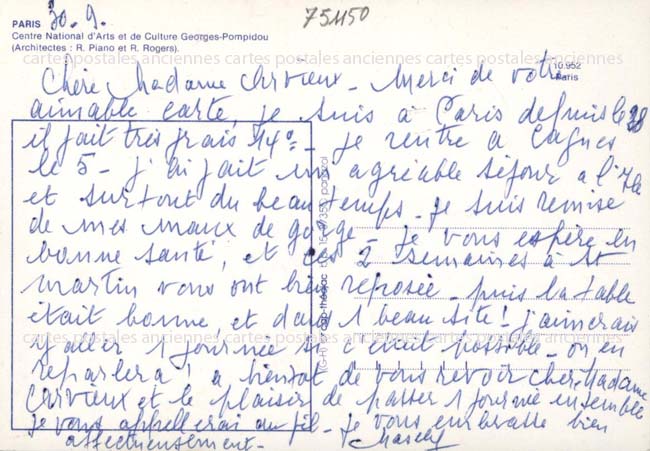 PARIS 30.9. 75M50
Centre National d'Arts et de Culture Georges-Pompidou
(Architectes : R. Piano et R. Rogers).
cartes postales anciennes cartes postales anciennes cartes postales anciennes
10.952
Paris
Chère Madame Crvieux - Merci de votre
aimable carte, je suis à Paris depuis le 28
il fait très frais 14° - je rentre à Cagnes
le 5 - j'ai fait un agréable séjour a l'Ile
et surtout du beau temps - je suis remise
de mes maux de gorge - je vous espère en
bonne santé, et ces 2 semaines à St
martin vous ont bien reposée - puis la table
était bonne, et dans 1 beau site ! j'aimerais
y aller 1 journée si c'était possible - on en
reparlera ! a bientot de vous revoir chère Madame
Crvieux et le plaisir de passer 1 journée ensemble
je vous appellerai au fil - je vous embrasse bien
affectueusement -